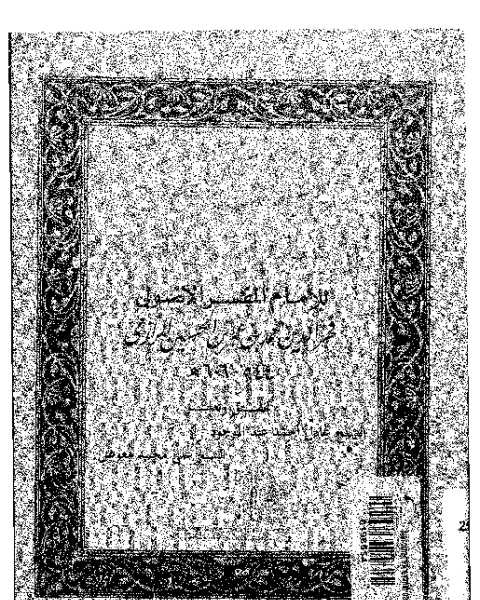 للإمام المفسر الأصولي
فخر الدين محمد بن عمر بن الحسين الرازي
٥٤٤ ٦٠٦ هـ
تحقيق وتعليق
الشيخ عادل أحمد عبد الموجود
الشيخ علي محمد معوض